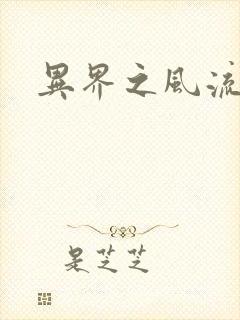 異界之風流
是芝芝